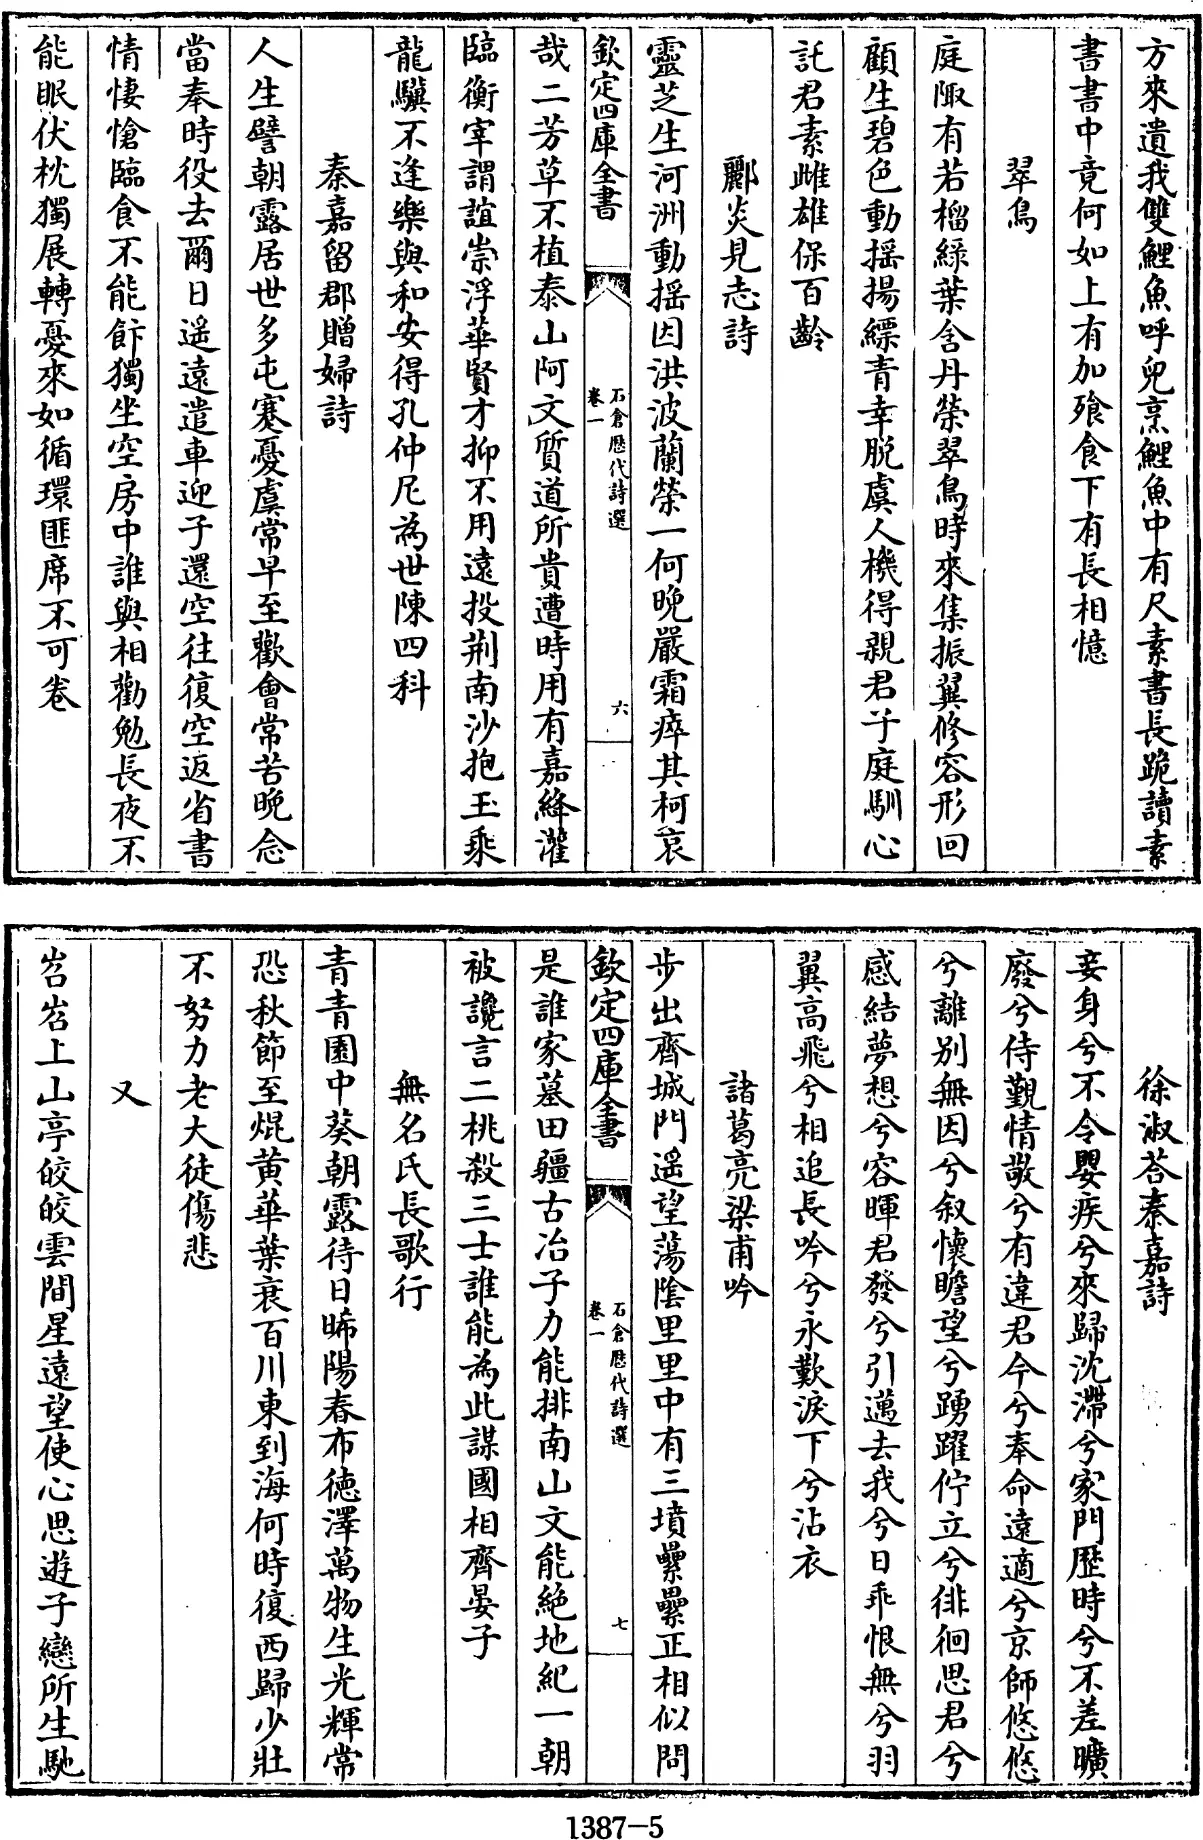 方來遺我雙鯉魚呼兒烹鯉魚中有尺素書長跪讀素
書書中竟何如上有加飱食下有長相憶
翠鳥
庭陬有若榴綠葉含丹榮翠鳥時來集振翼修容形回
顧生碧色動揺揚縹青幸脫虞人機得親君子庭馴心
託君素雌雄保百齡
酈炎見志詩
靈芝生河洲動揺因洪波蘭榮一何晩嚴霜瘁其柯哀
欽定四庫全書
石倉歷代詩選
卷一
六
哉二芳草不植泰山阿文質道所貴遭時用有嘉絳灌
臨衡宰謂誼崇浮華賢才抑不用遠投荆南沙抱玉乘
龍驥不逢樂與和安得孔仲尼為世陳四科
秦嘉留郡贈婦詩
人生譬朝露居世多屯蹇憂虞常早至歡會常苦晚念
當奉時役去爾日遥遠遣車迎子還空往復空返省書
情悽愴臨食不能飰獨坐空房中誰與相勸勉長夜不
能眠伏枕獨展轉憂來如循環匪席不可卷
徐淑荅秦嘉詩
妾身兮不令嬰疾兮來歸沈滯兮家門歴時兮不差曠
廢兮侍覲情敬兮有違君今兮奉命遠適兮京師悠悠
兮離别無因兮叙懷瞻望兮踴躍佇立兮徘徊思君兮
感結夢想兮容暉君發兮引邁去我兮日乖恨無兮羽
翼高飛兮相追長吟兮永歎淚下兮沾衣
諸葛亮梁甫吟
步出齊城門遥望蕩陰里里中有三墳纍纍正相似問
欽定四庫全書
石倉歷代詩選
卷一
七
是誰家墓田疆古冶子力能排南山文能絶地紀一朝
被讒言二桃殺三士誰能為此謀國相齊晏子
無名氏長歌行
青青園中葵朝露待日晞陽春布德澤萬物生光輝常
恐秋節至焜黄華葉衰百川東到海何時復西歸少壯
不努力老大徒傷悲
又
岧岧上山亭皎皎雲間星遠望使心思遊子戀所生馳
1387-5